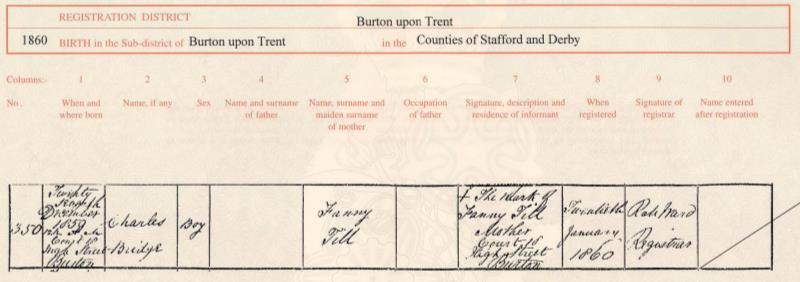 REGISTRATION DISTRICT Burton upon Trent
1860 BIRTH in the Sub-district of Burton upon Trent in the Counties of Stafford and Derby
Columns:- 1 2 3 4 5 6 7 8 9 10
No. When and where born Name, if any Sex Name and surname of father Name, surname and maiden surname of mother Occupation of father Signature, description and residence of informant When registered Signature of registrar Name entered after registration
350
Twenty
Seventh
December
1859
Court 18
High Street
Burton
Charles
Bridge
Boy
Fanny
Till
The Mark of
Fanny Till
Mother
Court 18
High Street
Burton
Twentieth
January
1860
Ward
Registrar